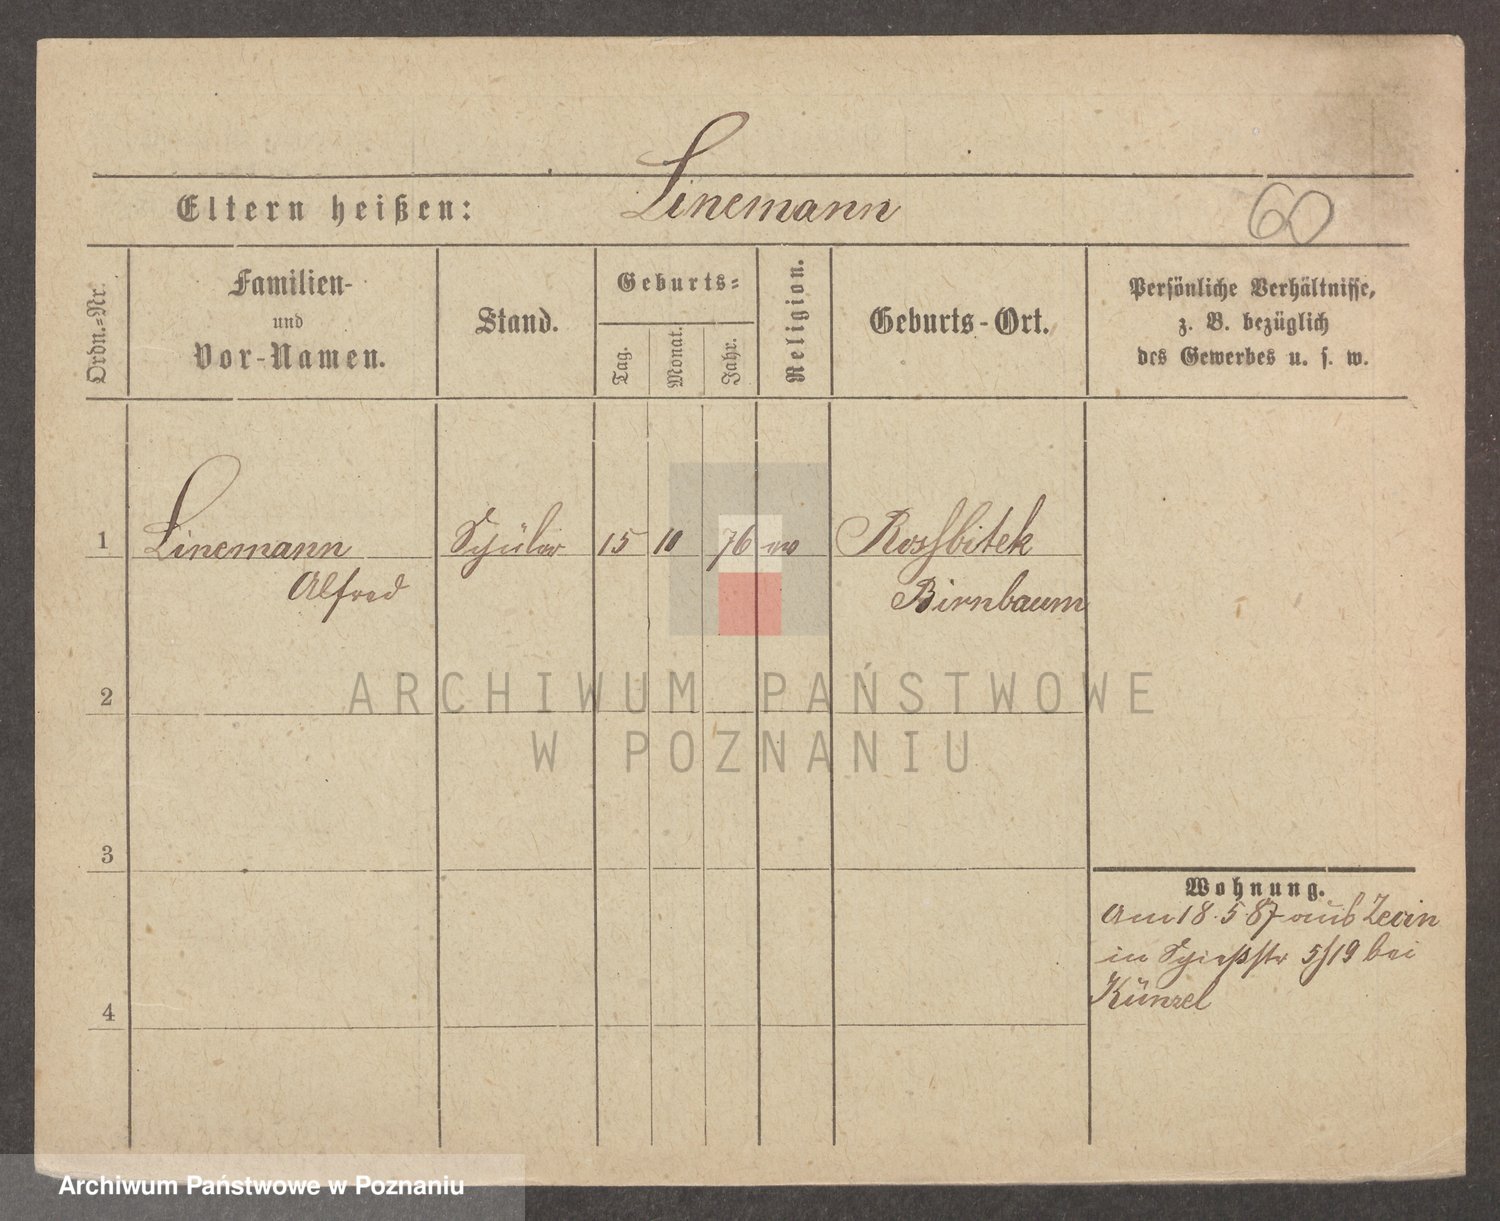 Linemann
Eltern heißen:
60
Ordn.=Nr.
Familien-
und
Vor-Namen.
Stand.
Geburts=
Tag.
Monat.
Jahr.
Religion.
Geburts-Ort.
Persönliche Verhältnisse,
z. B. bezüglich
des Gewerbes u. s. w.
1 Linemann Schüler 15 10 76 Rossbitek
Alfred Birnbaum
ARCHIWUM PAŃSTWOWE
2
W POZNANIU
3
Wohnung.
Am 18.5 87 aus Zevin
in Schießstr 5/19 bei
Künzel
4
Archiwum Państwowe w Poznaniu